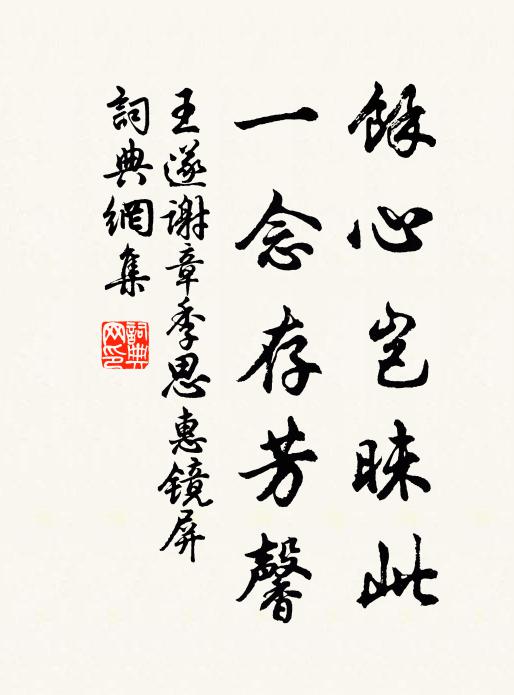 餘心岂昧此
一念存芳馨
王遂謝章季思惠镜屏
詞典網集
詞典网印